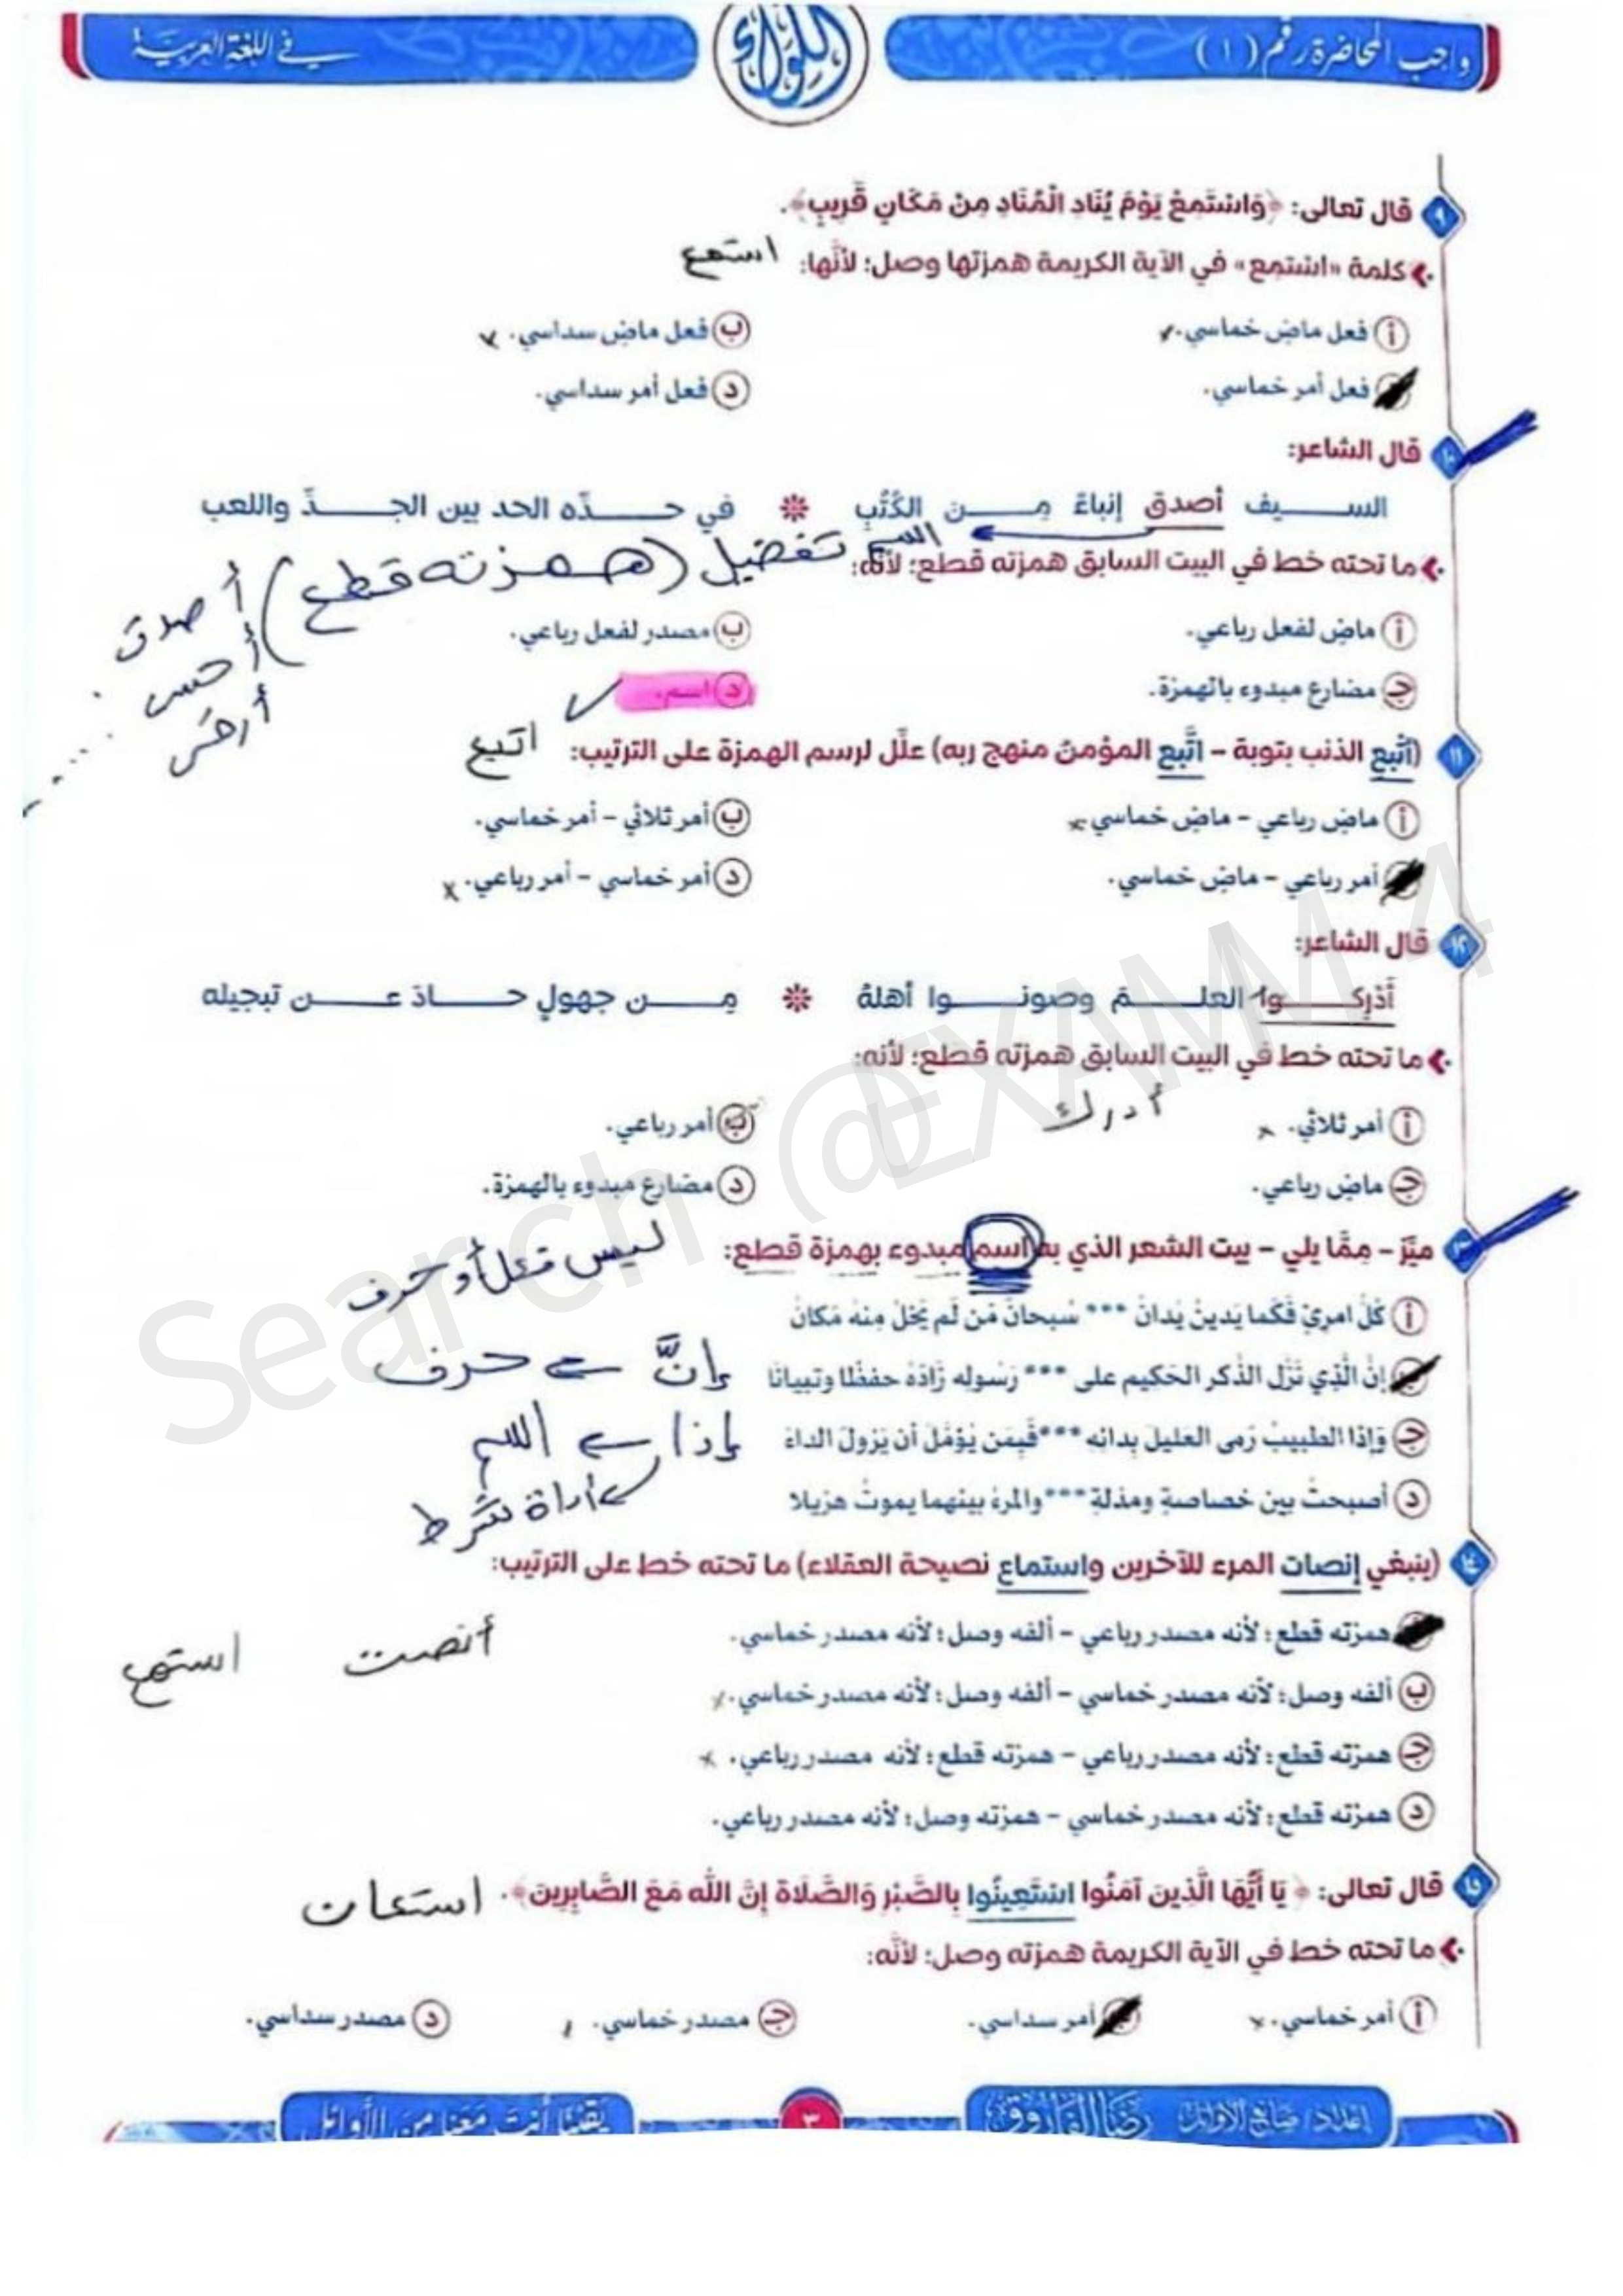 واجب المحاضرة رقم (١)
اللواء
في اللغة العربية
٩ قال تعالى: ﴿وَاسْتَمِعْ يَوْمَ يُنَادِ الْمُنَادِ مِنْ مَكَانٍ قَرِيبٍ﴾.
كلمة «استمع» في الآية الكريمة همزتها وصل؛ لأنَّها: استمع
أ فعل ماضٍ خماسي. ×
ب فعل ماضٍ سداسي. ×
فعل أمر خماسي.
د فعل أمر سداسي.
١٠ قال الشاعر:
السيف أصدق إنباءً مِن الكُتُبِ * في حدّه الحد بين الجدّ واللعب
ما تحته خط في البيت السابق همزته قطع؛ لأنَّه: اسم تفضيل (همزته قطع)
أصدق
أ ماضٍ لفعل رباعي.
ب مصدر لفعل رباعي.
جـ مضارع مبدوء بالهمزة.
د اسم.
١١ (أتْبِع الذنب بتوبة – اتَّبع المؤمنُ منهج ربه) علِّل لرسم الهمزة على الترتيب: اتبع
أ ماضٍ رباعي – ماضٍ خماسي. ×
ب أمر ثلاثي – أمر خماسي.
أمر رباعي – ماضٍ خماسي.
د أمر خماسي – أمر رباعي. ×
١٢ قال الشاعر:
أَدْرِكوا العلمَ وصونوا أهلهُ * مِن جهولٍ حادَ عن تبجيله
ما تحته خط في البيت السابق همزته قطع؛ لأنه:
أدرك
أ أمر ثلاثي. ×
ب أمر رباعي.
جـ ماضٍ رباعي.
د مضارع مبدوء بالهمزة.
ميّزْ – مِمَّا يلي – بيت الشعر الذي به اسم مبدوء بهمزة قطع: ليس فعل أو حرف
أ كُلُّ امرِئٍ فَكَما يَدينُ يُدانُ *** سُبحانَ مَن لَم يَخلُ مِنهُ مَكانُ
إنَّ الَّذي نَزَّل الذِّكر الحَكيم على *** رَسُوله زَادَهُ حفظًا وتبيانًا إنَّ حرف
جـ وَإذا الطبيبُ رَمى العليلَ بدائه *** فَبِمَن يُؤمّلُ أن يَزولَ الداءَ إذا اسم
أداة شرط
د أصبحتُ بين خصاصةٍ ومذلةٍ *** والمرءُ بينهما يموتُ هزيلا
١٤ (ينبغي إنصات المرء للآخرين واستماع نصيحة العقلاء) ما تحته خط على الترتيب:
همزته قطع؛ لأنه مصدر رباعي – ألفه وصل؛ لأنه مصدر خماسي. أنصت استمع
ب ألفه وصل؛ لأنه مصدر خماسي – ألفه وصل؛ لأنه مصدر خماسي. ×
جـ همزته قطع؛ لأنه مصدر رباعي – همزته قطع؛ لأنه مصدر رباعي. ×
د همزته قطع؛ لأنه مصدر خماسي – همزته وصل؛ لأنه مصدر رباعي.
١٥ قال تعالى: ﴿يَا أَيُّهَا الَّذِينَ آمَنُوا اسْتَعِينُوا بِالصَّبْرِ وَالصَّلَاةِ إِنَّ اللَّهَ مَعَ الصَّابِرِينَ﴾. استعان
ما تحته خط في الآية الكريمة همزته وصل؛ لأنَّه:
أ أمر خماسي. ×
أمر سداسي.
جـ مصدر خماسي.
د مصدر سداسي.
إعداد/ صانع الأوائل رضا الفاروق
٣
يَقِينًا أنتَ مَعَنا مِنَ الأوائل
Search @EXAMM4